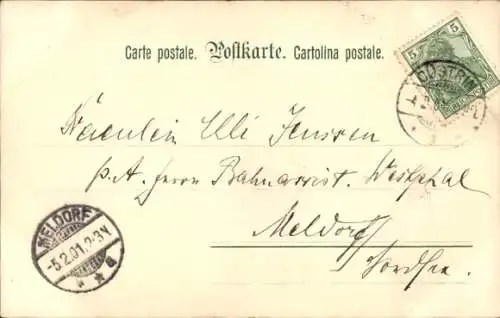 Carte postale. Postkarte. Cartolina postale.
5 5
CÜSTRIN
Fräulein Elli Jenssen
p. A. Herrn Bahnassist. Westphal
Meldorf
Nordsee.
MELDORF
-5.2.01.2-3N
* * a